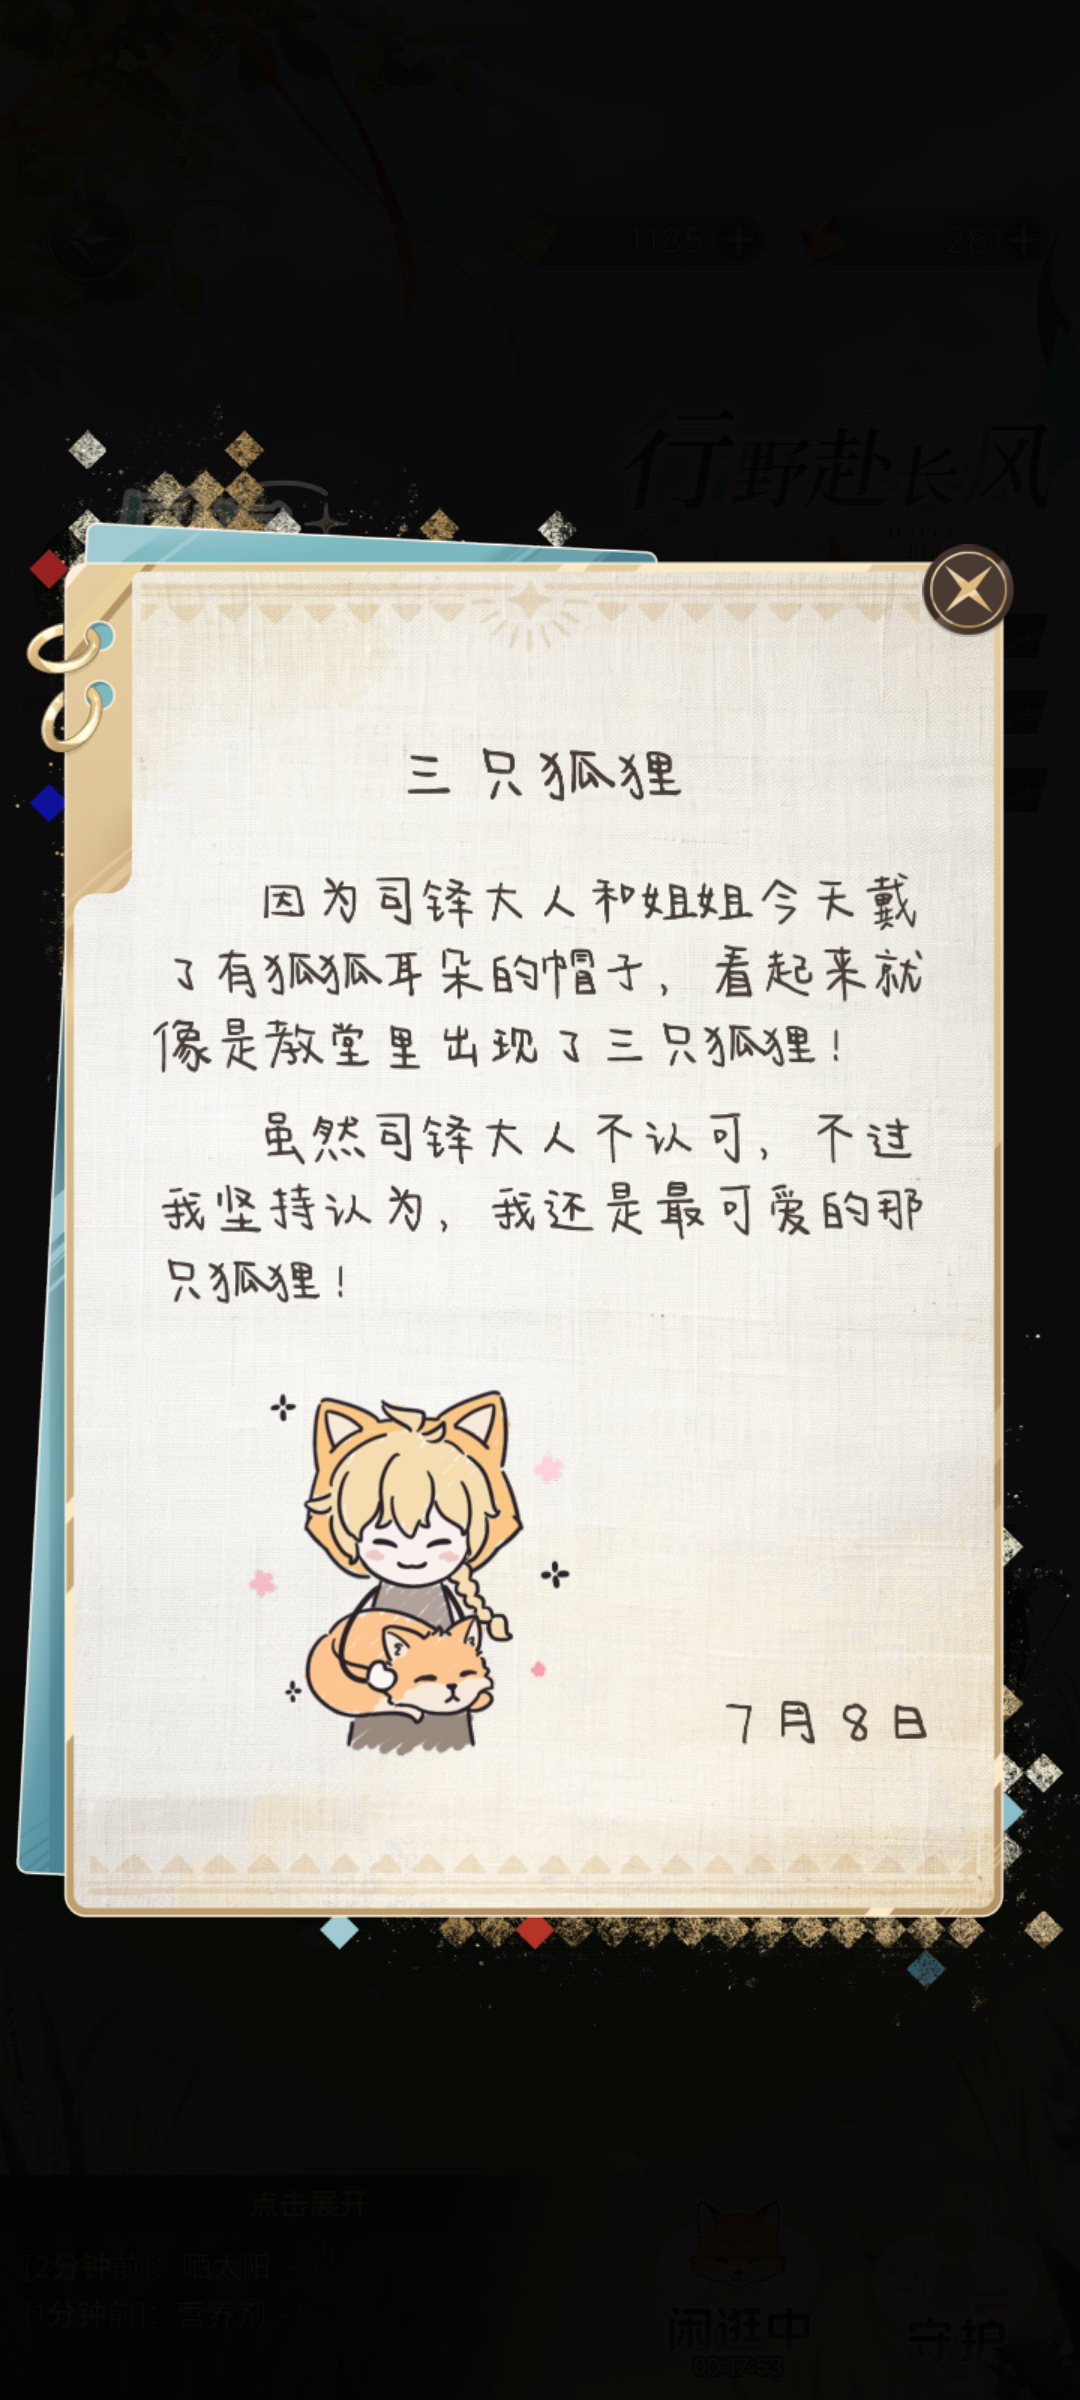 1185
28
行野赴长风
三只狐狸
因为司铎大人和姐姐今天戴
了有狐狐耳朵的帽子，看起来就
像是教堂里出现了三只狐狸！
虽然司铎大人不认可，不过
我坚持认为，我还是最可爱的那
只狐狸！
7月8日
点击展开
[2分钟前]：晒太阳 +9
[1分钟前]：营养剂
闲逛中
守护
00:17:53